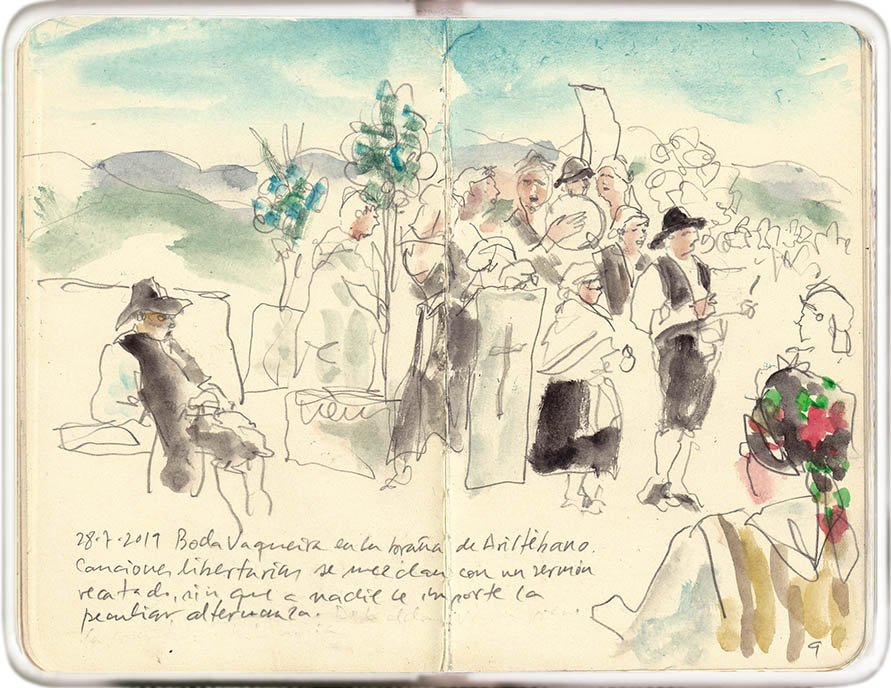 28·7·2019 Boda Vaqueira en la braña de Aristébano.
Canciones libertarias se mezclan con un sermón
recatado, sin que a nadie le importe la
peculiar alternanza.
9